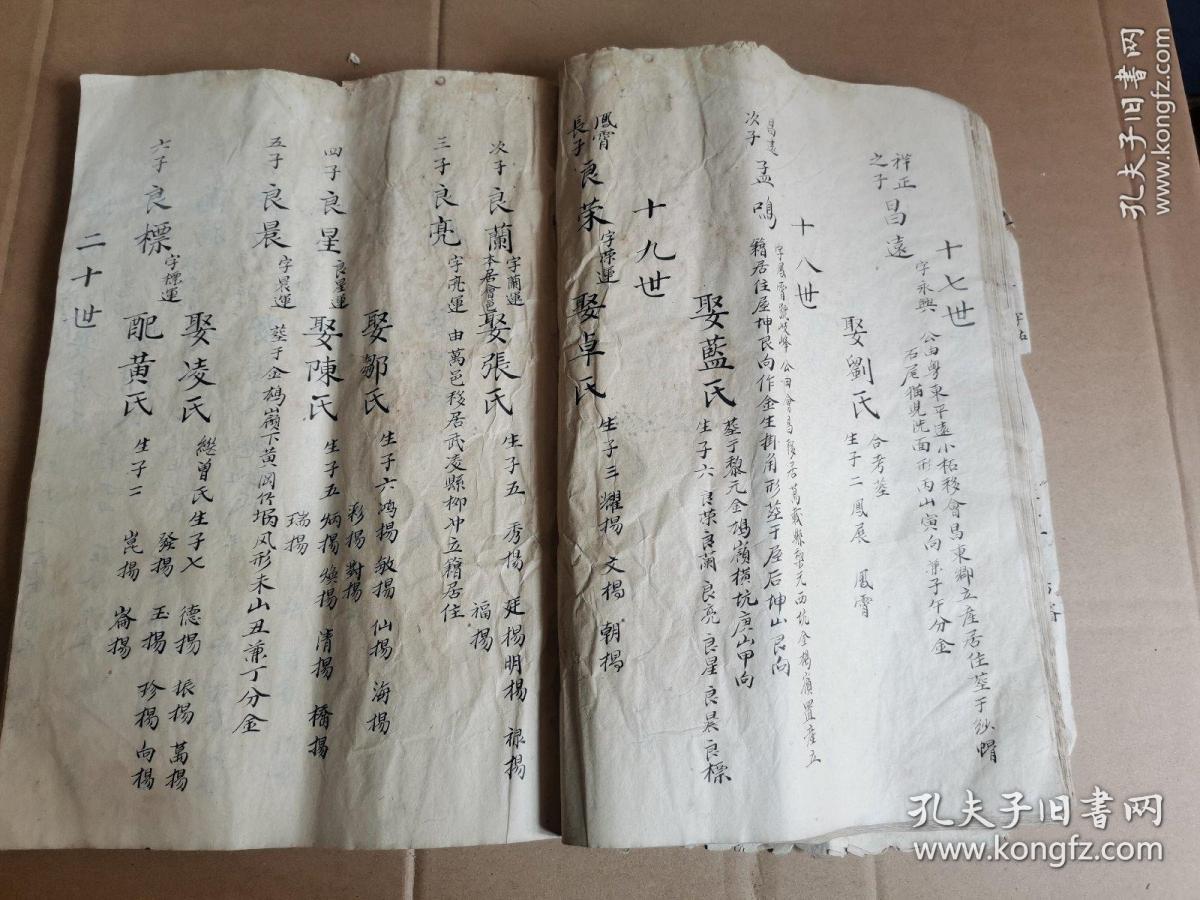 十七世
祥正
之子
昌遠
字永興 公由粵東平遠小柘移會昌東鄉立產居住塟于紗帽
石尾猫児洗面形丙山寅向兼子午分金
娶劉氏
合考塟
生子二 鳳展 鳳霄
十八世
昌遠
次子
孟鳴
字鳳霄號岐峰 公由會昌移居萬載縣黎元西坑金鳩嶺置產立
籍居住屋坤艮向作金生掛角形塟于屋右坤山艮向
娶藍氏
塟于黎元金鳩嶺橫坑庚山甲向
生子六 良荣 良蘭 良亮 良星 良晨 良標
十九世
鳳霄
長子
良荣
字荣運
娶卓氏
生子三 耀揚 文揚 朝揚
次子
良蘭
字蘭運
本居會邑
娶張氏
生子五 秀揚 廷揚 明揚 禄揚
福揚
三子
良亮
字亮運 由萬邑移居武凌縣柳冲立籍居住
娶鄒氏
生子六 鸿揚 敏揚 仙揚 海揚
彩揚 對揚
四子
良星
良星運
娶陳氏
生子五 炳揚 煥揚 清揚 橋揚
瑞揚
五子
良晨
字晨運 塟于金鵝嶺下黄岡仔塅风形未山丑兼丁分金
六子
良標
字標運
娶凌氏
繼曾氏生子七 發揚 德揚 振揚 萬揚
玉揚 珍揚 向揚
配黄氏
生子二 崑揚 崙揚
二十世
孔夫子旧书网
www.kongfz.com
孔夫子旧书网
www.kongfz.com